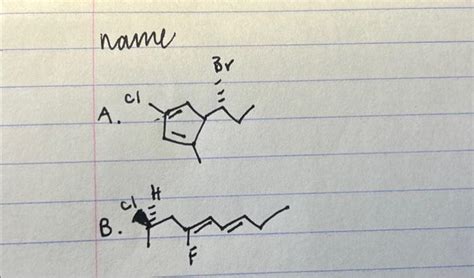 name
Br
Cl
A.
Cl H
B.
F